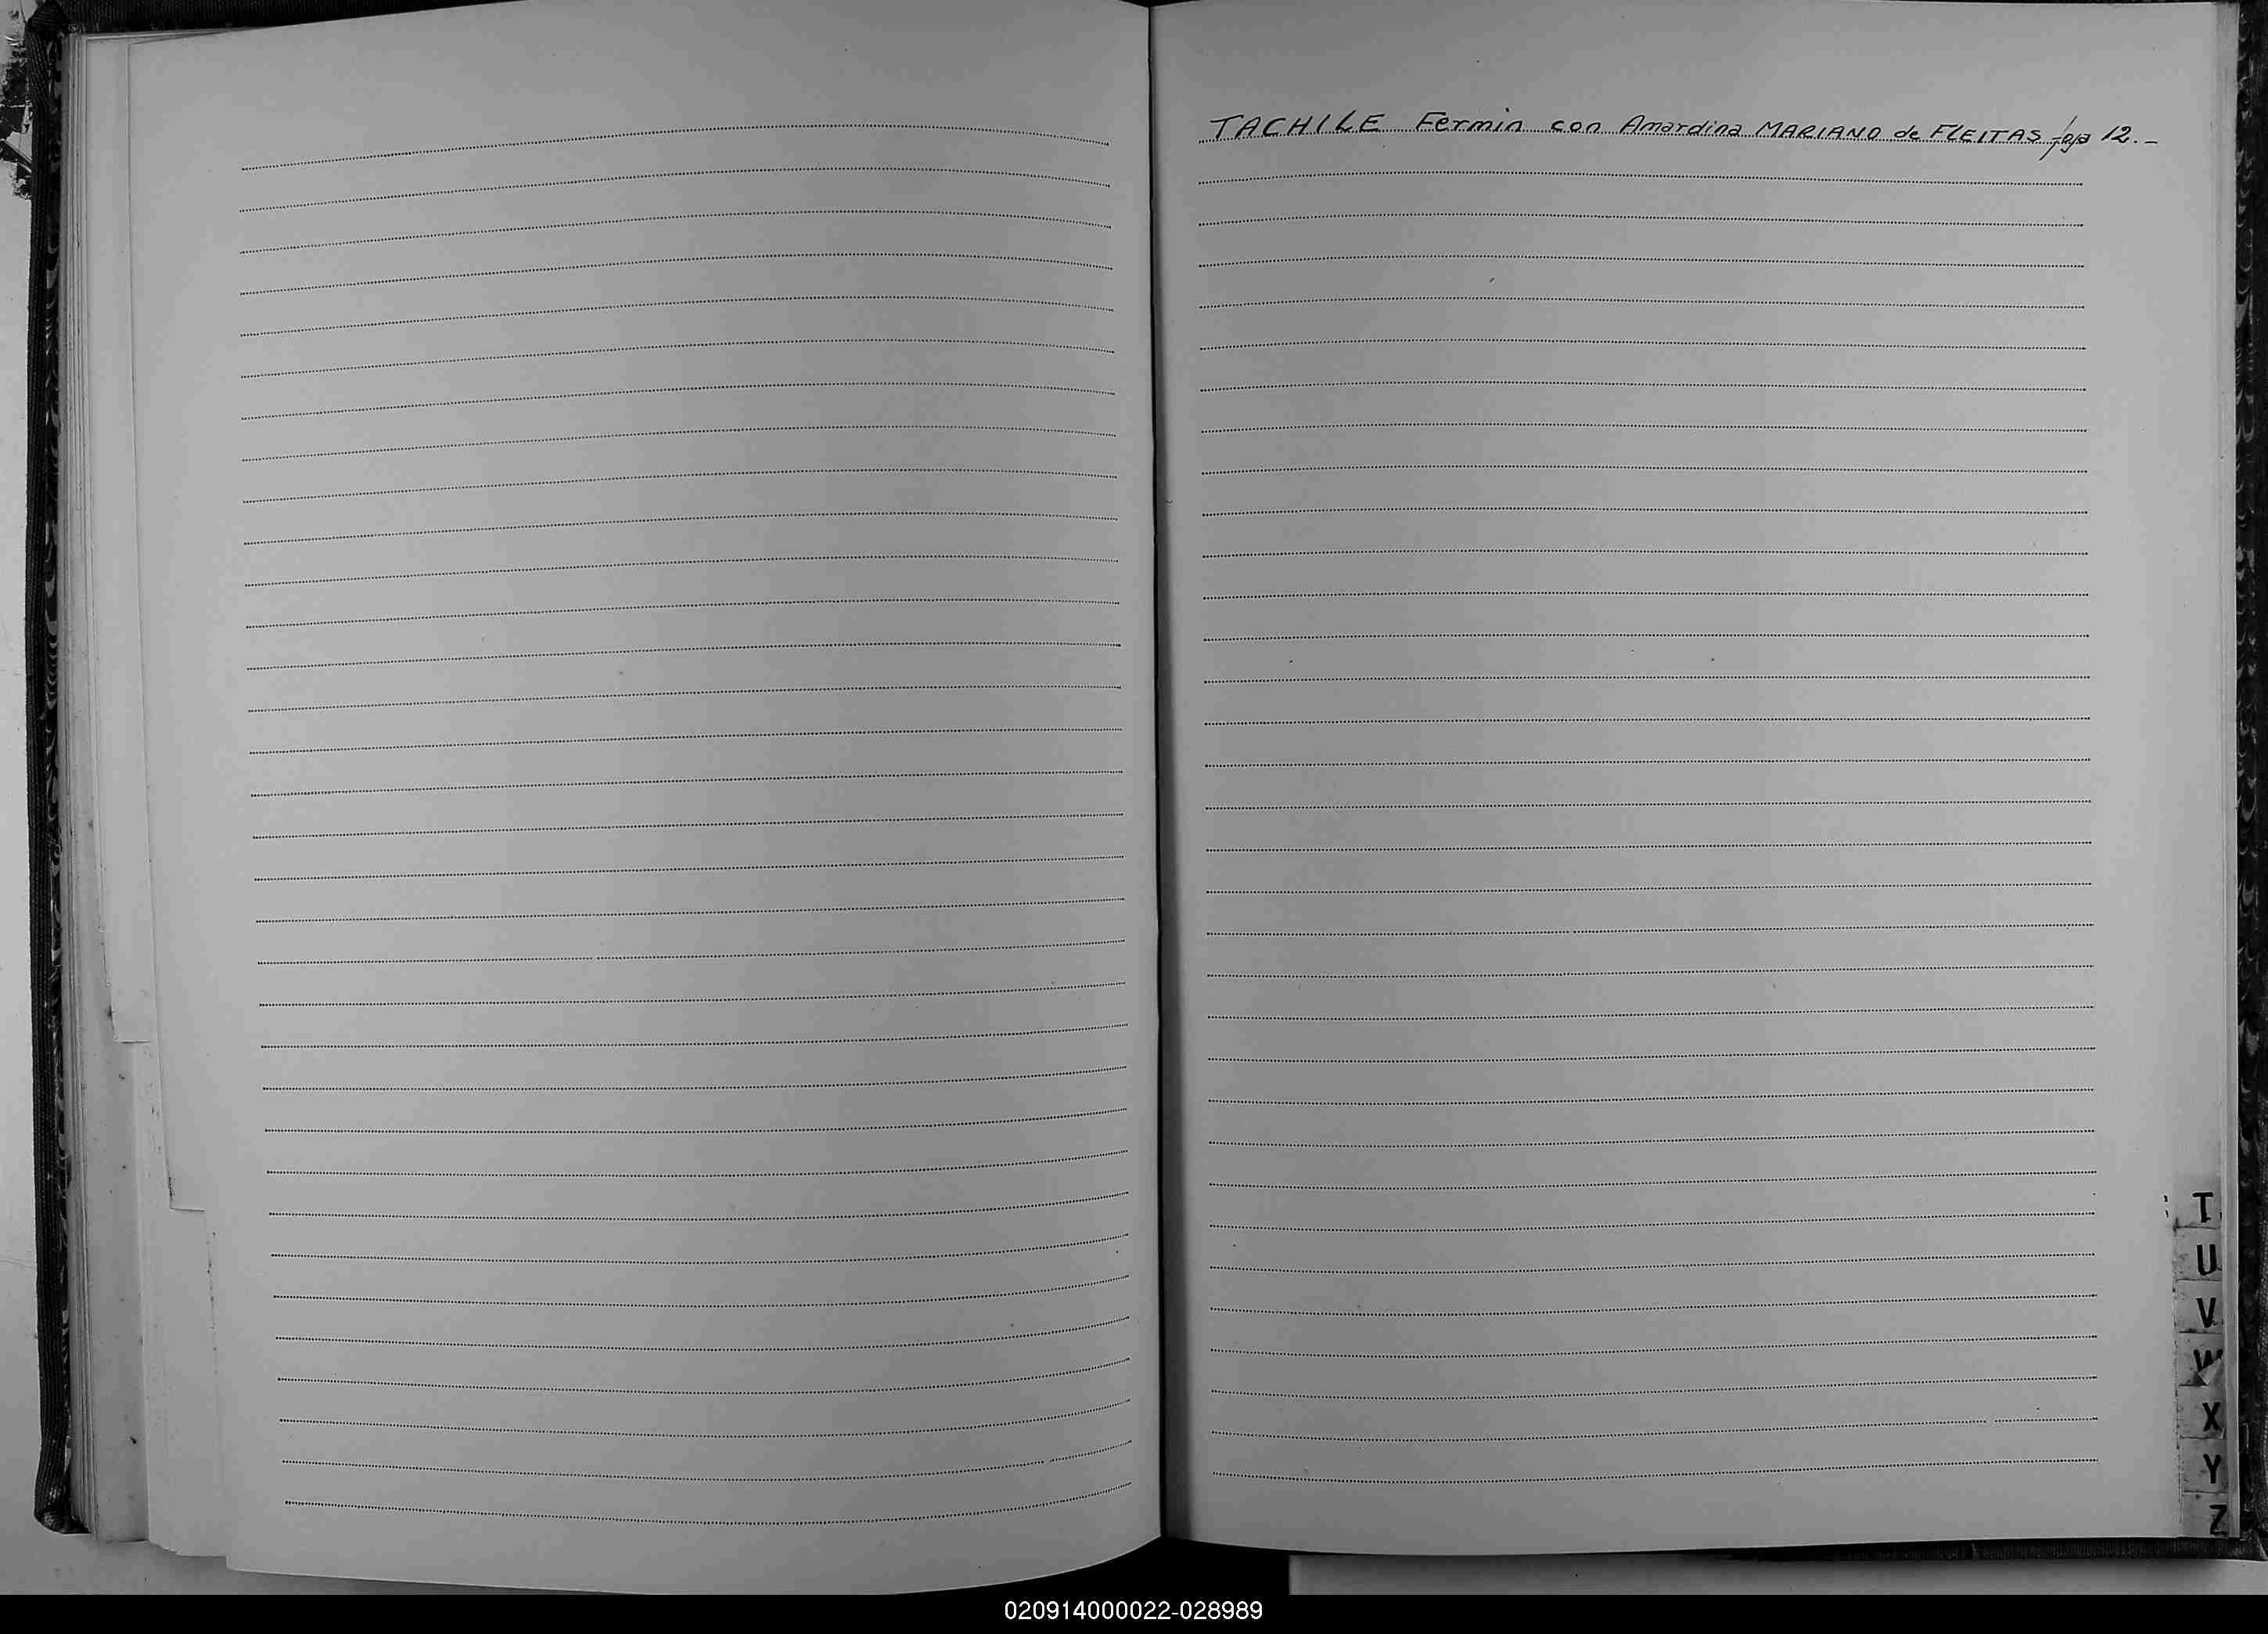 TACHILE Fermin con Amardina MARIANO de FLEITAS foja 12.-
T
U
V
W
X
Y
Z
020914000022-028989